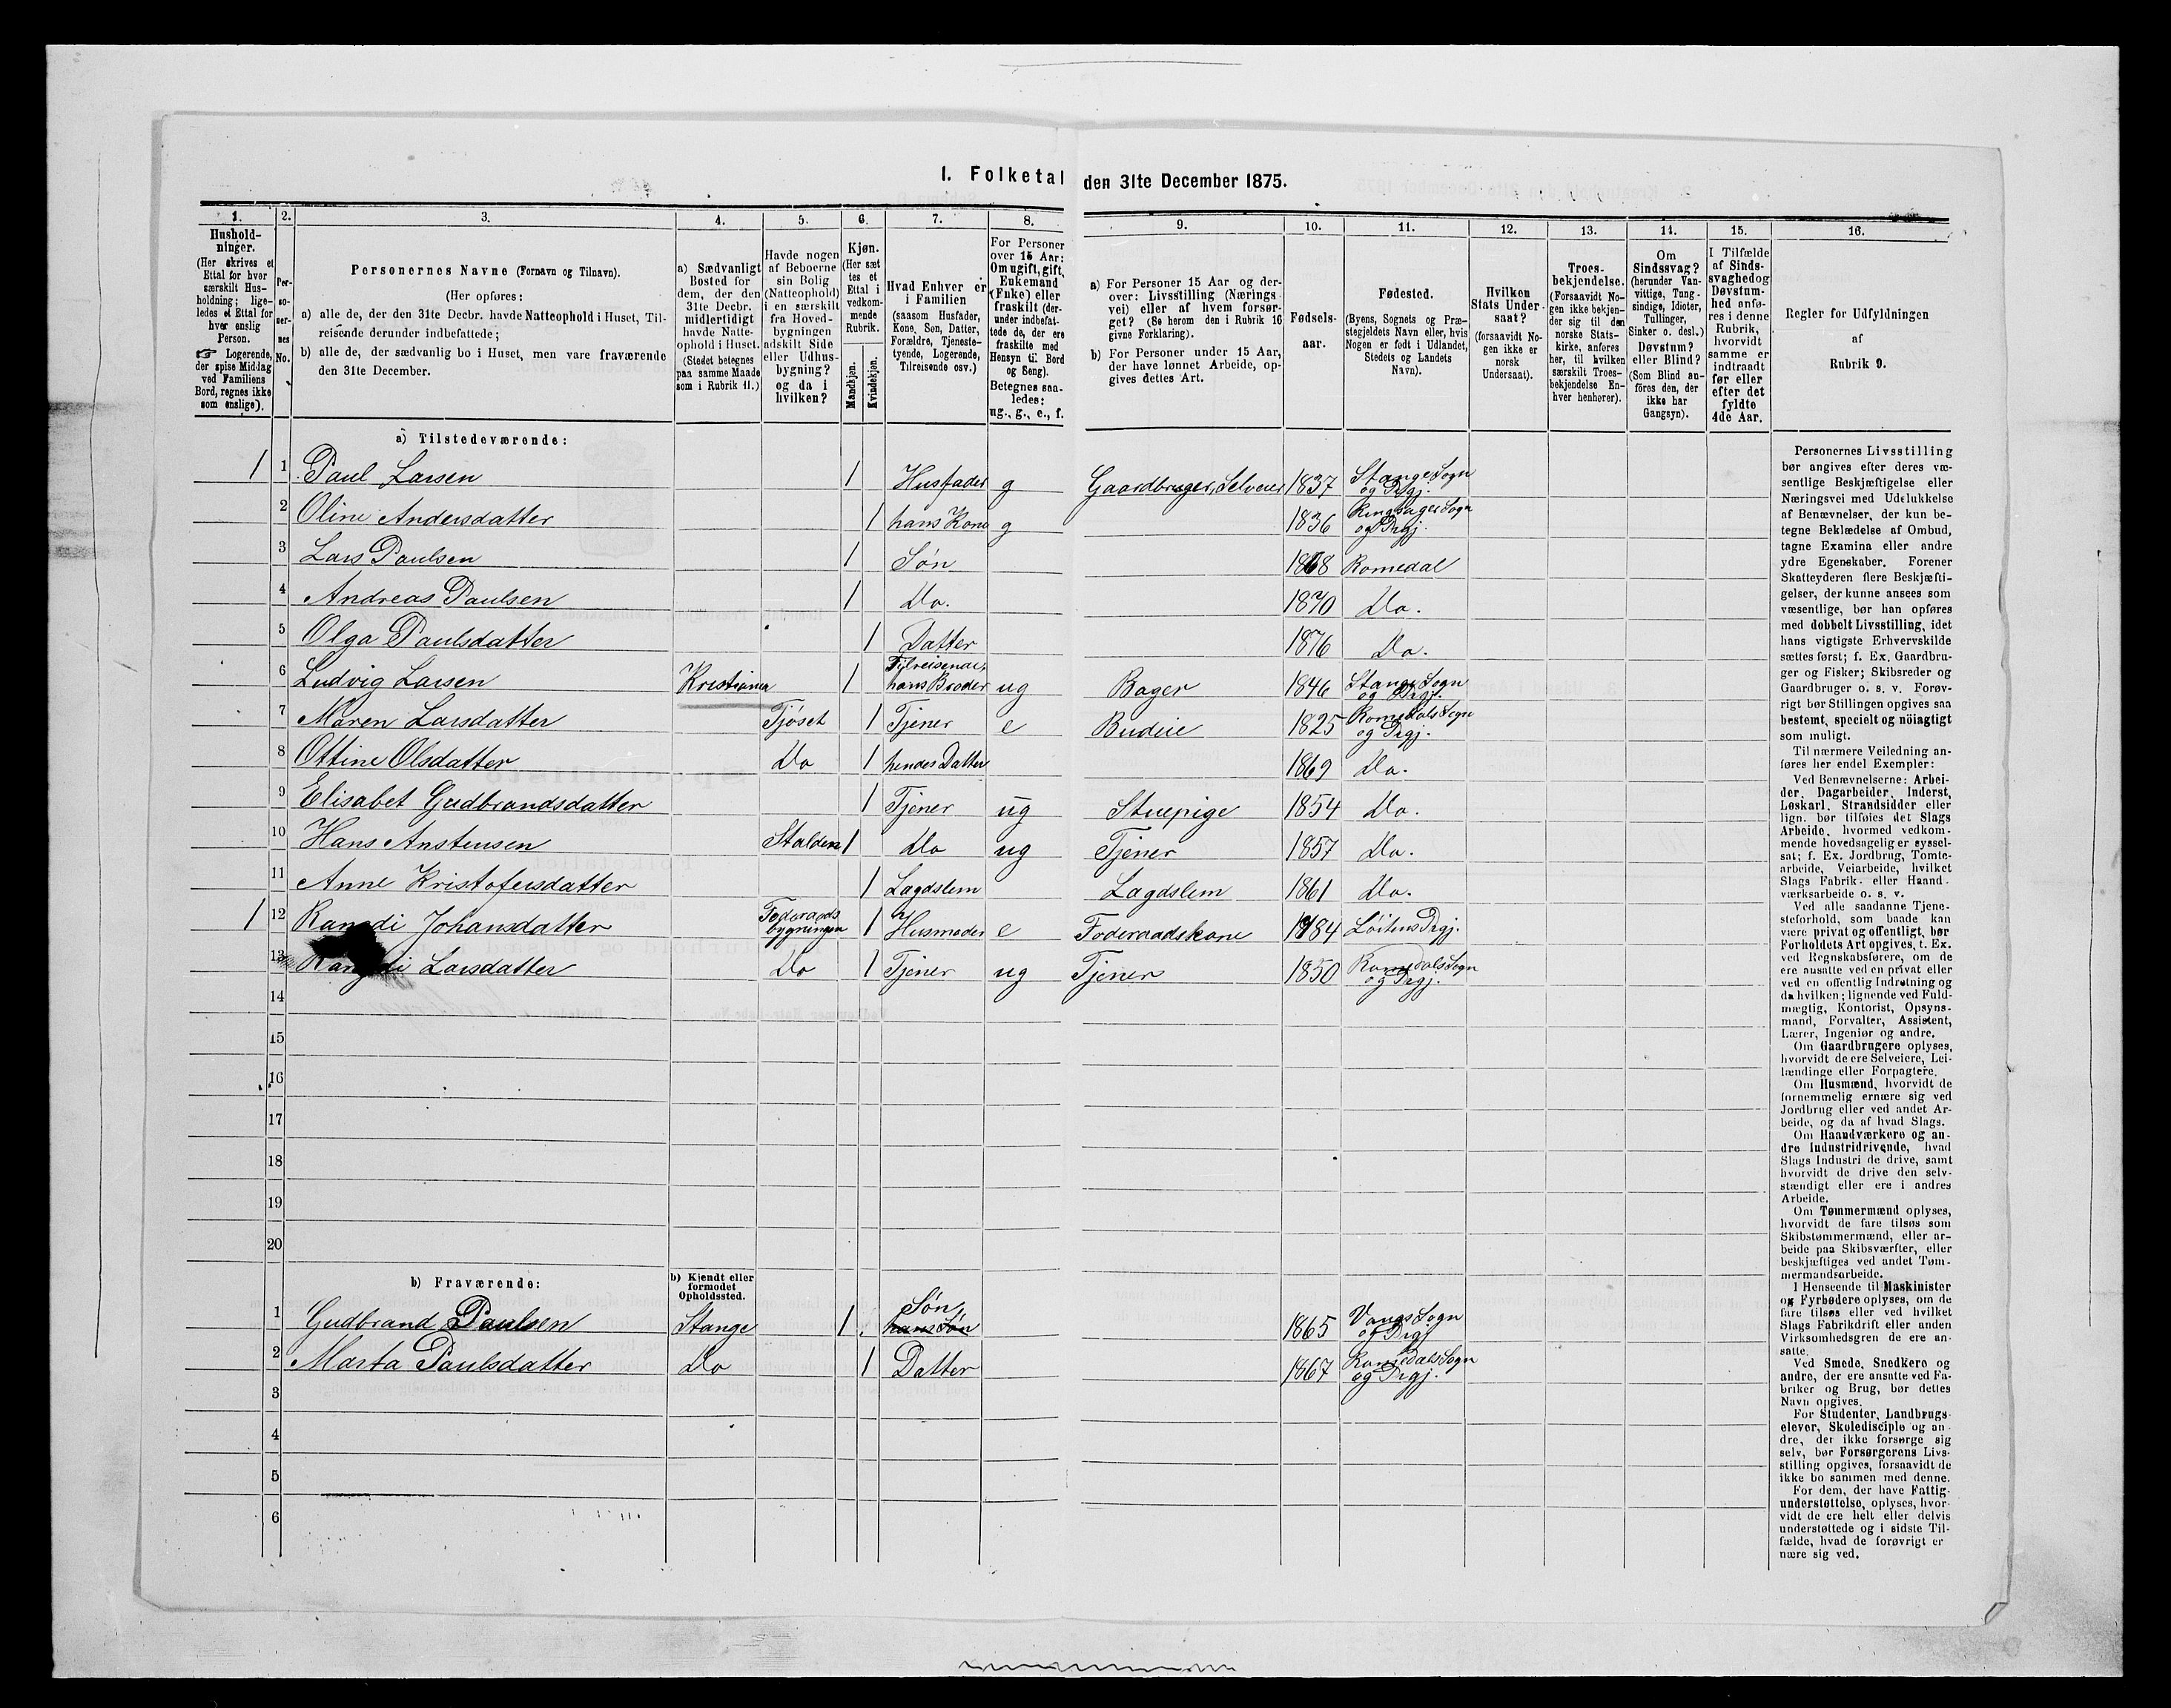 I. Folketal den 31te December 1875.
1. 2. 3. 4. 5. 6. 7. 8. 9. 10. 11. 12. 13. 14. 15. 16.
Hushold-
ninger.
(Her skrives et
Ettal for hver
særskilt Hus-
holdning; lige-
ledes et Ettal for
hver enslig
Person.
☞ Logerende,
der spise Middag
ved Familiens
Bord, regnes ikke
som enslige).
Per-
so-
ner-
nes
No.
Personernes Navne (Fornavn og Tilnavn).
(Her opføres:
a) alle de, der den 31te Decbr. havde Natteophold i Huset, Til-
reisende derunder indbefattede;
b) alle de, der sædvanlig bo i Huset, men vare fraværende
den 31te December.
a) Sædvanligt
Bosted for
dem, der den
31te Decbr.
midlertidigt
havde Natte-
ophold i Huset.
(Stedet betegnes
paa samme Maade
som i Rubrik 11.)
Havde nogen
af Beboerne
sin Bolig
(Natteophold)
i en særskilt
fra Hoved-
bygningen
adskilt Side
eller Udhus-
bygning?
og da i
hvilken?
Kjøn.
(Her sæt
tes et
Ettal i
vedkom-
mende
Rubrik.
Mandkjøn.
Kvindekjøn.
Hvad Enhver er
i Familien
(saasom Husfader,
Kone, Søn, Datter,
Forældre, Tjeneste-
tyende, Logerende,
Tilreisende osv.)
For Personer
over 15 Aar:
Om ugift, gift,
Enkemand
(Enke) eller
fraskilt (der-
under indbefat-
tede de, der ere
fraskilte med
Hensyn til Bord
og Seng).
Betegnes saa-
ledes:
ug., g., e., f.
a) For Personer 15 Aar og der-
over: Livsstilling (Nærings
vei) eller af hvem forsør-
get? (Se herom den i Rubrik 16
givne Forklaring).
b) For Personer under 15 Aar,
der have lønnet Arbeide, op-
gives dettes Art.
Fødsels-
aar.
Fødested.
(Byens, Sognets og Præ-
stegjeldets Navn eller, hvis
Nogen er født i Udlandet,
Stedets og Landets
Navn).
Hvilken
Stats Under-
saat?
(forsaavidt No-
gen ikke er
norsk
Undersaat).
Troes-
bekjendelse.
(Forsaavidt No-
gen ikke bekjen-
der sig til den
norske Stats-
kirke, anføres
her, til hvilken
særskilt Troes-
bekjendelse En-
hver henhører).
Om
Sindssvag?
(herunder Van-
vittige, Tung-
sindige, Idioter,
Tullinger,
Sinker o. desl.)
Døvstum?
eller Blind?
(Som Blind an-
føres den, der
ikke har
Gangsyn).
I Tilfælde
af Sinds-
svaghed og
Døvstum-
hed anfø-
res i denne
Rubrik,
hvorvidt
samme er
indtraadt
før eller
efter det
fyldte
4de Aar.
Regler for Udfyldningen
af
Rubrik 9.
a) Tilstedeværende:
1 1 Paul Larsen 1 Husfader g Gaardbruger, Selveier 1837 Stange Sogn og Prgj.
2 Oline Andersdatter 1 hans Kone g 1836 Ringsager Sogn og Prgj.
3 Lars Paulsen 1 Søn 1868 Romedal
4 Andreas Paulsen 1 Do. 1870 Do.
5 Olga Paulsdatter 1 Datter 1876 Do.
6 Ludvig Larsen Kristiania 1 Tilreisende, hans Broder ug Bager 1846 Stange Sogn og Prgj.
7 Maren Larsdatter Fjøset 1 Tjener e Budeie 1825 Romedals Sogn og Prgj.
8 Ottine Olsdatter Do 1 hendes Datter 1869 Do.
9 Elisabet Gudbrandsdatter 1 Tjener ug Stuepige 1854 Do.
10 Hans Anstensen Stalden 1 Do ug Tjener 1857 Do.
11 Anne Kristofersdatter 1 Lagdslem Lagdslem 1861 Do.
1 12 Rangdi Johansdatter Foderaads bygningen 1 Husmoder e Foderaadskone 1784 Løitens Prgj.
13 Rangdi Larsdatter Do 1 Tjener ug Tjener 1850 Romedals Sogn og Prgj.
14
15
16
17
18
19
20
b) Fraværende:
b) Kjendt eller
formodet
Opholdssted.
1 Gudbrand Paulsen Stange 1 Søn, hans Søn 1865 Vangs Sogn og Prgj
2 Marta Paulsdatter Do 1 Datter 1867 Romedals Sogn og Prgj.
3
4
5
6
Personernes Livsstilling
bør angives efter deres væ-
sentlige Beskjæftigelse eller
Næringsvei med Udelukkelse
af Benævnelser, der kun be-
tegne Beklædelse af Ombud,
tagne Examina eller andre
ydre Egenskaber. Forener
Skatteyderen flere Beskjæfti-
gelser, der kunne ansees som
væsentlige, bør han opføres
med dobbelt Livsstilling, idet
hans vigtigste Erhvervskilde
sættes først; f. Ex. Gaardbru-
ger og Fisker; Skibsreder og
Gaardbruger o. s. v. Forøv-
rigt bør Stillingen opgives saa
bestemt, specielt og nöiagtigt
som muligt.
Til nærmere Veiledning an-
føres her endel Exempler:
Ved Benævnelserne: Arbei-
der, Dagarbeider, Inderst,
Løskarl, Strandsidder eller
lign. bør tilføies det Slags
Arbeide, hvormed vedkom-
mende hovedsagelig er syssel-
sat; f. Ex. Jordbrug, Tomte-
arbeide, Veiarbeide, hvilket
Slags Fabrik- eller Haand-
værksarbeide o. s. v.
Ved alle saadanne Tjene-
steforhold, som baade kan
være privat og offentligt, bør
Forholdets Art opgives, t. Ex.
ved Regnskabsførere, om de
ere ansatte ved en privat eller
ved en offentlig Indretning og
da hvilken; lignende ved Fuld-
mægtig, Kontorist, Opsyns-
mand, Forvalter, Assistent,
Lærer, Ingeniør og andre.
Om Gaardbrugere oplyses,
hvorvidt de ere Selveiere, Lei-
lændinge eller Forpagtere.
Om Husmænd, hvorvidt de
fornemmelig ernære sig ved
Jordbrug eller ved andet Ar-
beide, og da af hvad Slags.
Om Haandværkere og an-
dre Industridrivende, hvad
Slags Industri de drive, samt
hvorvidt de drive den selv-
stændigt eller ere i andres
Arbeide.
Om Tømmermænd oplyses,
hvorvidt de fare tilsøs som
Skibstømmermænd, eller ar-
beide paa Skibsværfter, eller
beskjæftiges ved andet Tøm-
mermandsarbeide.
I Henseende til Maskinister
og Fyrbødere oplyses, om de
fare tilsøs eller ved hvilket
Slags Fabrikdrift eller anden
Virksomhedsgren de ere an-
satte.
Ved Smede, Snedkere og
andre, der ere ansatte ved Fa-
briker og Brug, bør dettes
Navn opgives.
For Studenter, Landbrugs-
elever, Skoledisciple og an-
dre, der ikke forsørge sig
selv, bør Forsørgerens Livs-
stilling opgives, forsaavidt de
ikke bo sammen med denne.
For dem, der have Fattig-
understøttelse, oplyses, hvor-
vidt de ere helt eller delvis
understøttede og i sidste Til-
fælde, hvad de forøvrigt er
nære sig ved.